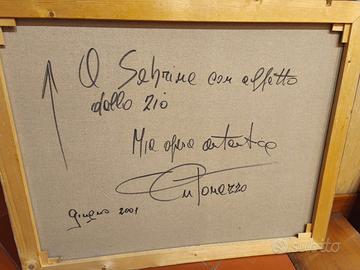 A Sabrina con affetto
dallo zio
Mia opera autentica
giugno 2001
subito